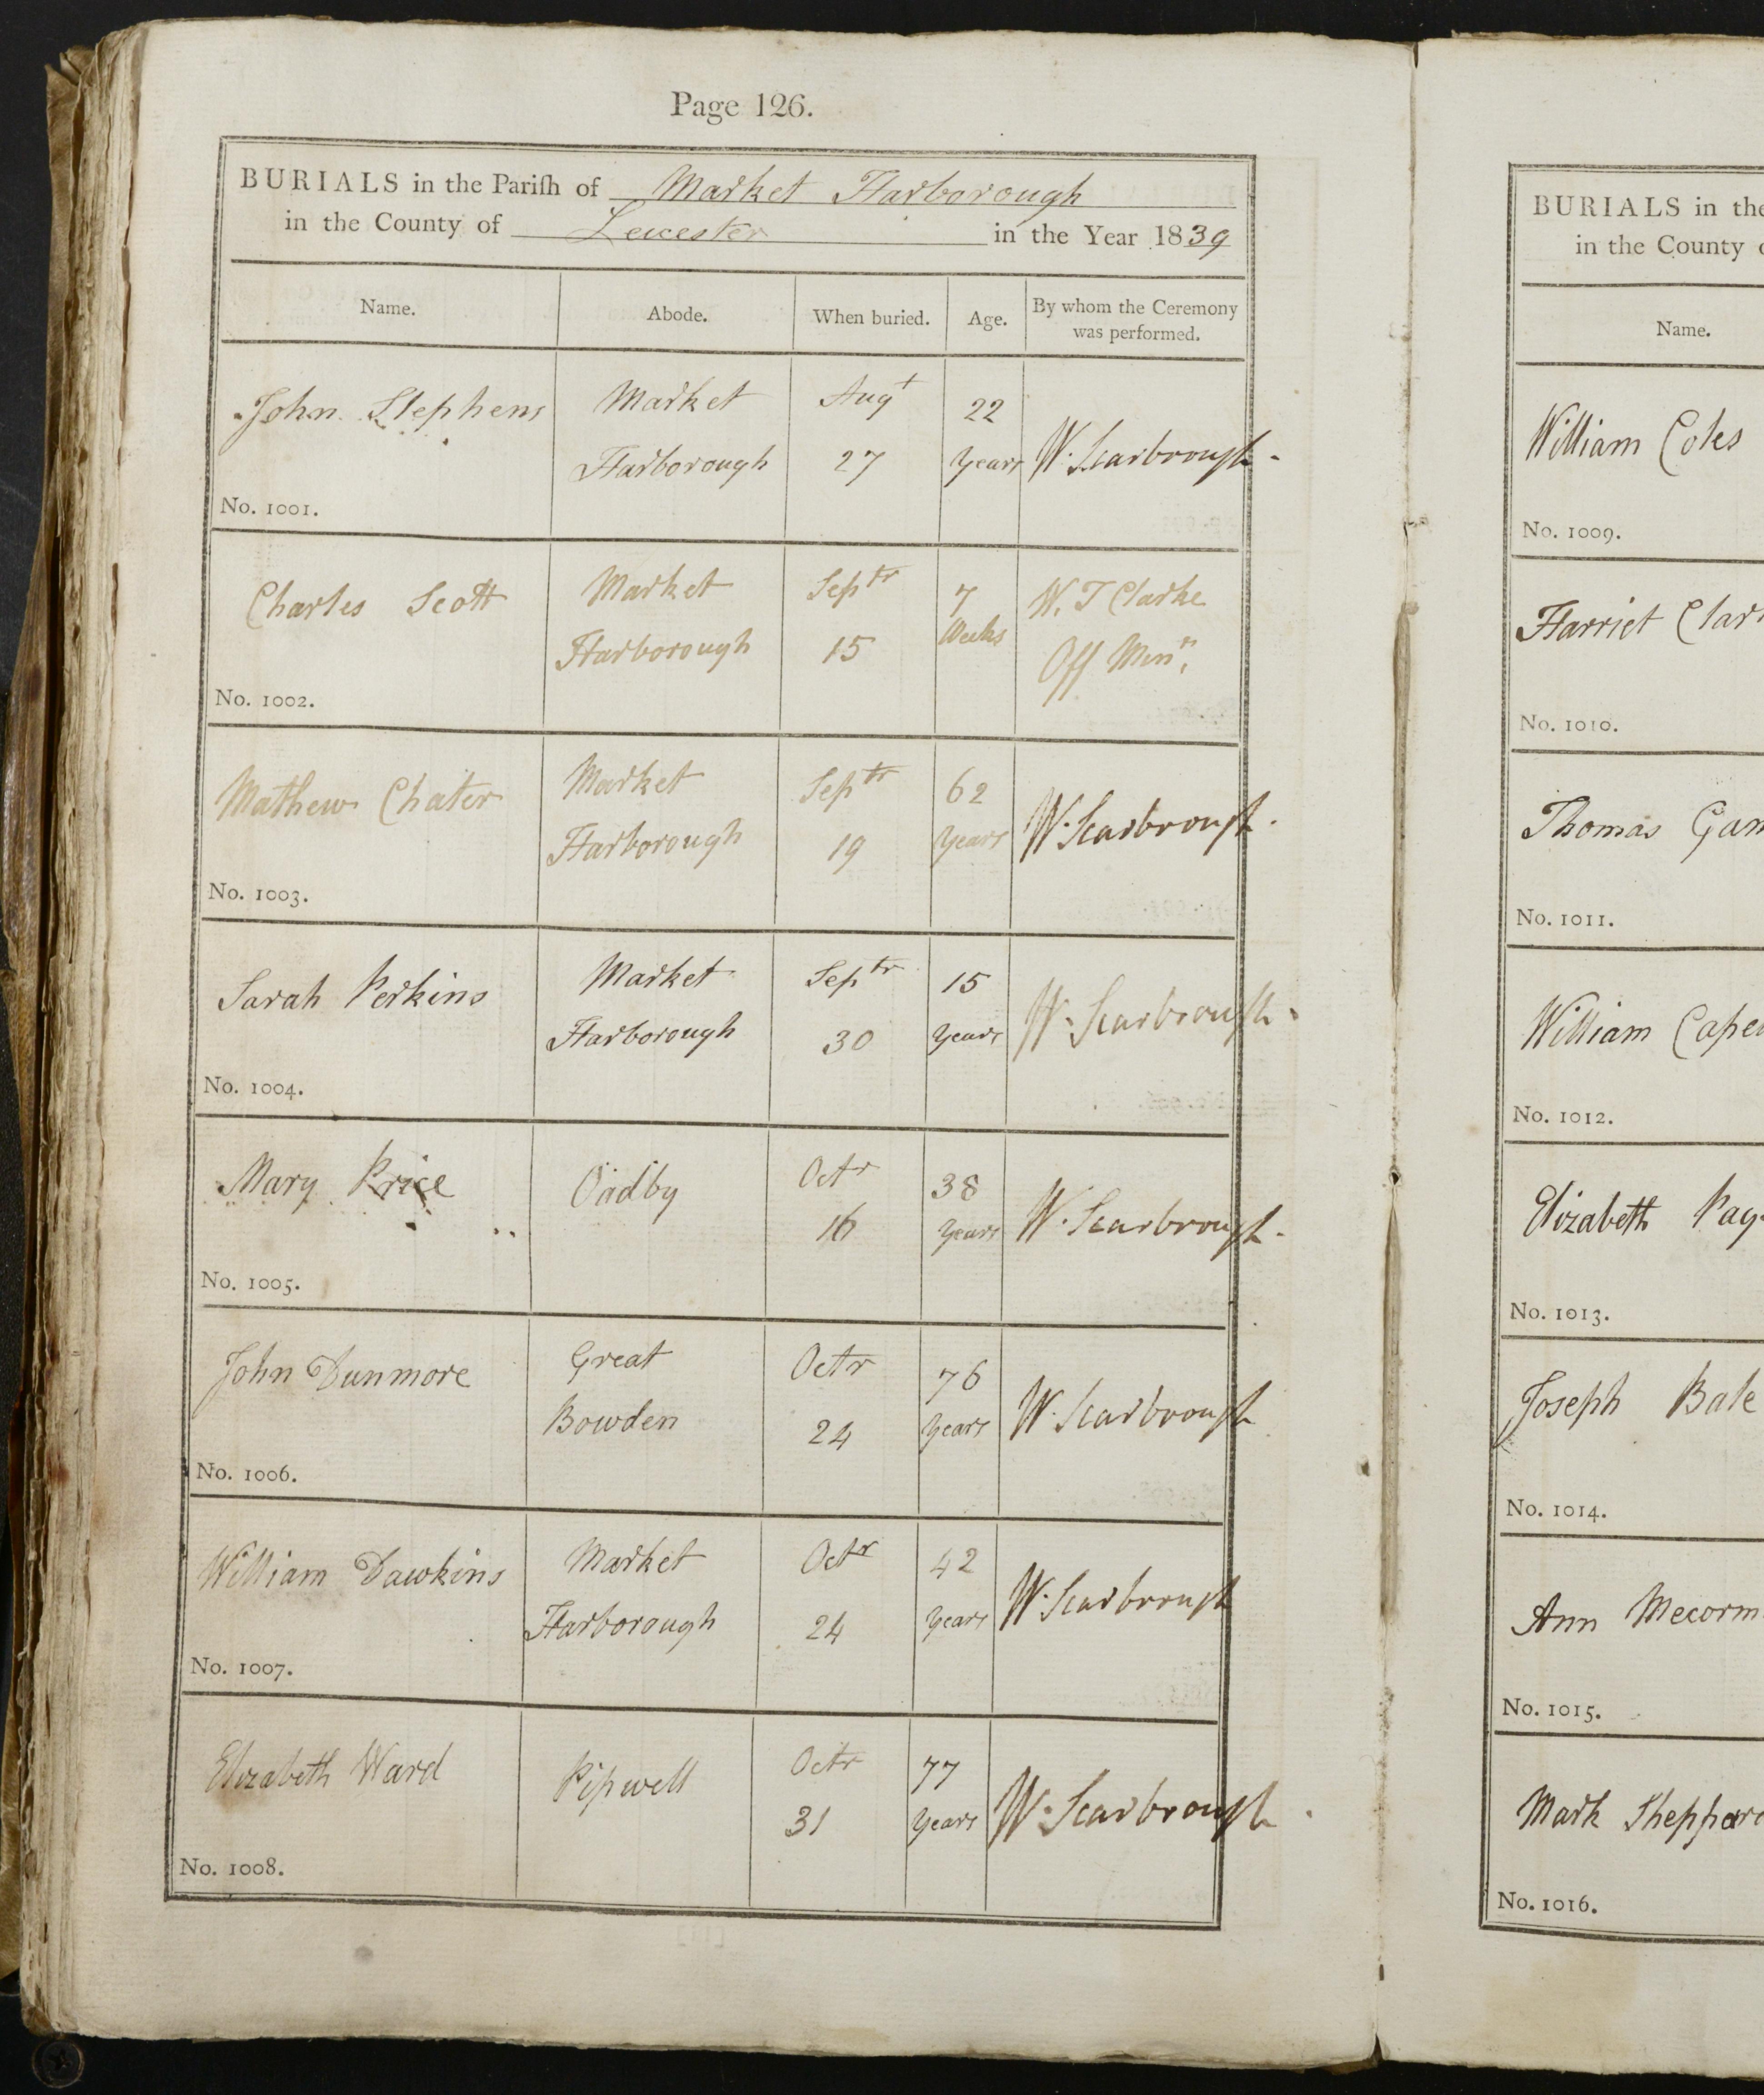 Page 126.
BURIALS in the Pariſh of Market Harborough
in the County of Leicester in the Year 1839
Name. Abode. When buried. Age. By whom the Ceremony
was performed.
John Stephens
Market
Harborough
Augt
27
22
Years
W. Scarbrough
No. 1001.
Charles Scott
Market
Harborough
Septr
15
7
Weeks
W. T Clarke
Off Minr.
No. 1002.
Mathew Chater
Market
Harborough
Septr
19
62
Years
W. Scarbrough
No. 1003.
Sarah Perkins
Market
Harborough
Septr
30
15
Years
W. Scarbrough
No. 1004.
Mary Price
Oadby
Octr
16
38
Years
W. Scarbrough
No. 1005.
John Dunmore
Great
Bowden
Octr
24
76
Years
W. Scarbrough
No. 1006.
William Dawkins
Market
Harborough
Octr
24
42
Years
W. Scarbrough
No. 1007.
Elizabeth Ward
Pipwell
Octr
31
77
Years
W. Scarbrough
No. 1008.
BURIALS in the
in the County
Name.
William Coles
No. 1009.
Harriet
No. 1010.
Thomas
No. 1011.
William
No. 1012.
Elizabeth
No. 1013.
Joseph Bale
No. 1014.
Ann
No. 1015.
Mark
No. 1016.